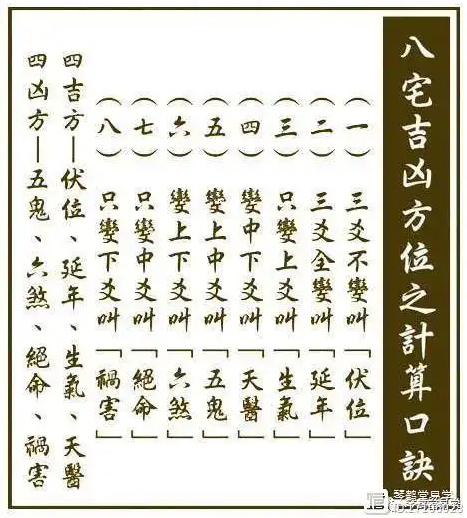 八宅吉凶方位之計算口訣
（一）三爻不變叫「伏位」
（二）三爻全變叫「延年」
（三）只變上爻叫「生氣」
（四）變中下爻叫「天醫」
（五）變上中爻叫「五鬼」
（六）變上下爻叫「六煞」
（七）只變中爻叫「絕命」
（八）只變下爻叫「禍害」
四吉方—伏位、延年、生氣、天醫
四凶方—五鬼、六煞、絕命、禍害
琴鹤堂易学